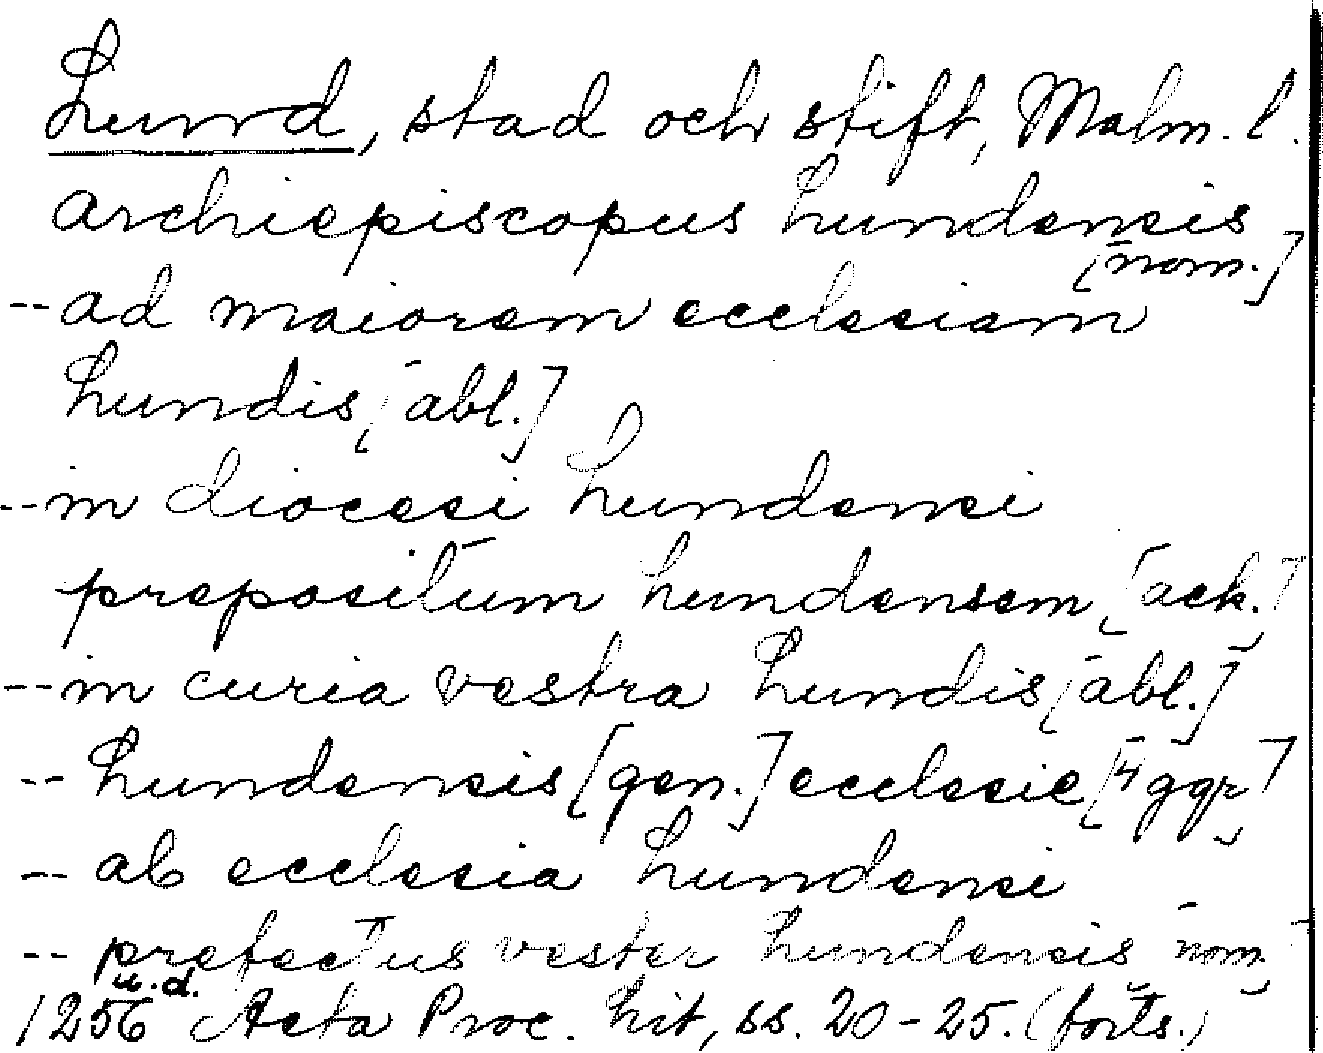 Lund, stad och stift, Malm. l.
archiepiscopus Lundensis
[nom.]
--ad maiorem ecclesiam
Lundis [abl.]
--in diocesi Lundensi
prepositum Lundensem [ack.]
--in curia vestra Lundis [abl.]
-- Lundensis [gen.] ecclesie [4 ggr]
-- ab ecclesia Lundensi
-- prefectus vester Lundensis [nom.]
u.d.
1256 Acta Proc. Lit, ss. 20-25. (forts.)